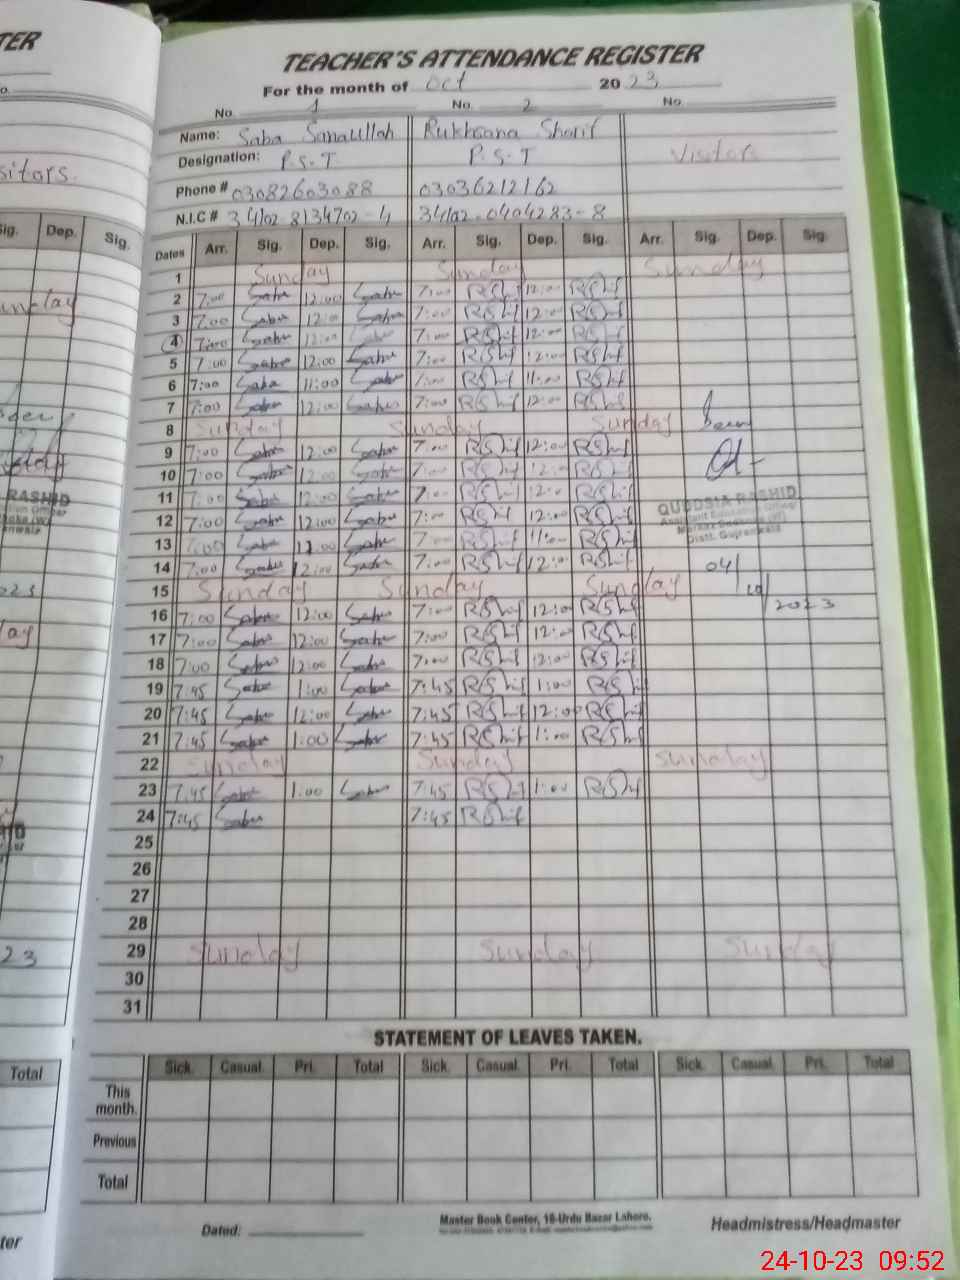 TER
TEACHER'S ATTENDANCE REGISTER
For the month of Oct 2023
No. 1 No. 2 No.
Name: Saba Sanaullah Rukhsana Sharif
Designation: P.S.T P.S.T Visitors
Phone # 03082603088 03036212162
N.I.C # 34102-8134702-4 34102-0404283-8
Dates Arr. Sig. Dep. Sig. Arr. Sig. Dep. Sig. Arr. Sig. Dep. Sig.
1 Sunday Sunday Sunday
2 7:00 Saba 12:00 Saba 7:00 RShif 12:00 RShif
3 7:00 Saba 12:00 Saba 7:00 RShif 12:00 RShif
4 7:00 Saba 12:00 Saba 7:00 RShif 12:00 RShif
5 7:00 Saba 12:00 Saba 7:00 RShif 12:00 RShif
6 7:00 Saba 11:00 Saba 7:00 RShif 11:00 RShif
7 7:00 Saba 12:00 Saba 7:00 RShif 12:00 RShif
8 Sunday Sunday Sunday
9 7:00 Saba 12:00 Saba 7:00 RShif 12:00 RShif
10 7:00 Saba 12:00 Saba 7:00 RShif 12:00 RShif
11 7:00 Saba 12:00 Saba 7:00 RShif 12:00 RShif
QUDDSIA RASHID
Assistant Education Officer
12 7:00 Saba 12:00 Saba 7:00 RShif 12:00 RShif
Distt. Gujranwala
13 7:00 Saba 11:00 Saba 7:00 RShif 11:00 RShif
14 7:00 Saba 12:00 Saba 7:00 RShif 12:00 RShif 04/10/2023
15 Sunday Sunday Sunday
16 7:00 Saba 12:00 Saba 7:00 RShif 12:00 RShif
17 7:00 Saba 12:00 Saba 7:00 RShif 12:00 RShif
18 7:00 Saba 12:00 Saba 7:00 RShif 12:00 RShif
19 7:45 Saba 1:00 Saba 7:45 RShif 1:00 RShif
20 7:45 Saba 12:00 Saba 7:45 RShif 12:00 RShif
21 7:45 Saba 1:00 Saba 7:45 RShif 1:00 RShif
22 Sunday Sunday Sunday
23 7:45 Saba 1:00 Saba 7:45 RShif 1:00 RShif
24 7:45 Saba 7:45 RShif
25
26
27
28
29 Sunday Sunday Sunday
30
31
STATEMENT OF LEAVES TAKEN.
Sick. Casual. Pri. Total Sick. Casual. Pri. Total Sick. Casual. Pri. Total
This
month.
Previous
Total
Dated:
Master Book Center, 18-Urdu Bazar Lahore.
Headmistress/Headmaster
24-10-23 09:52